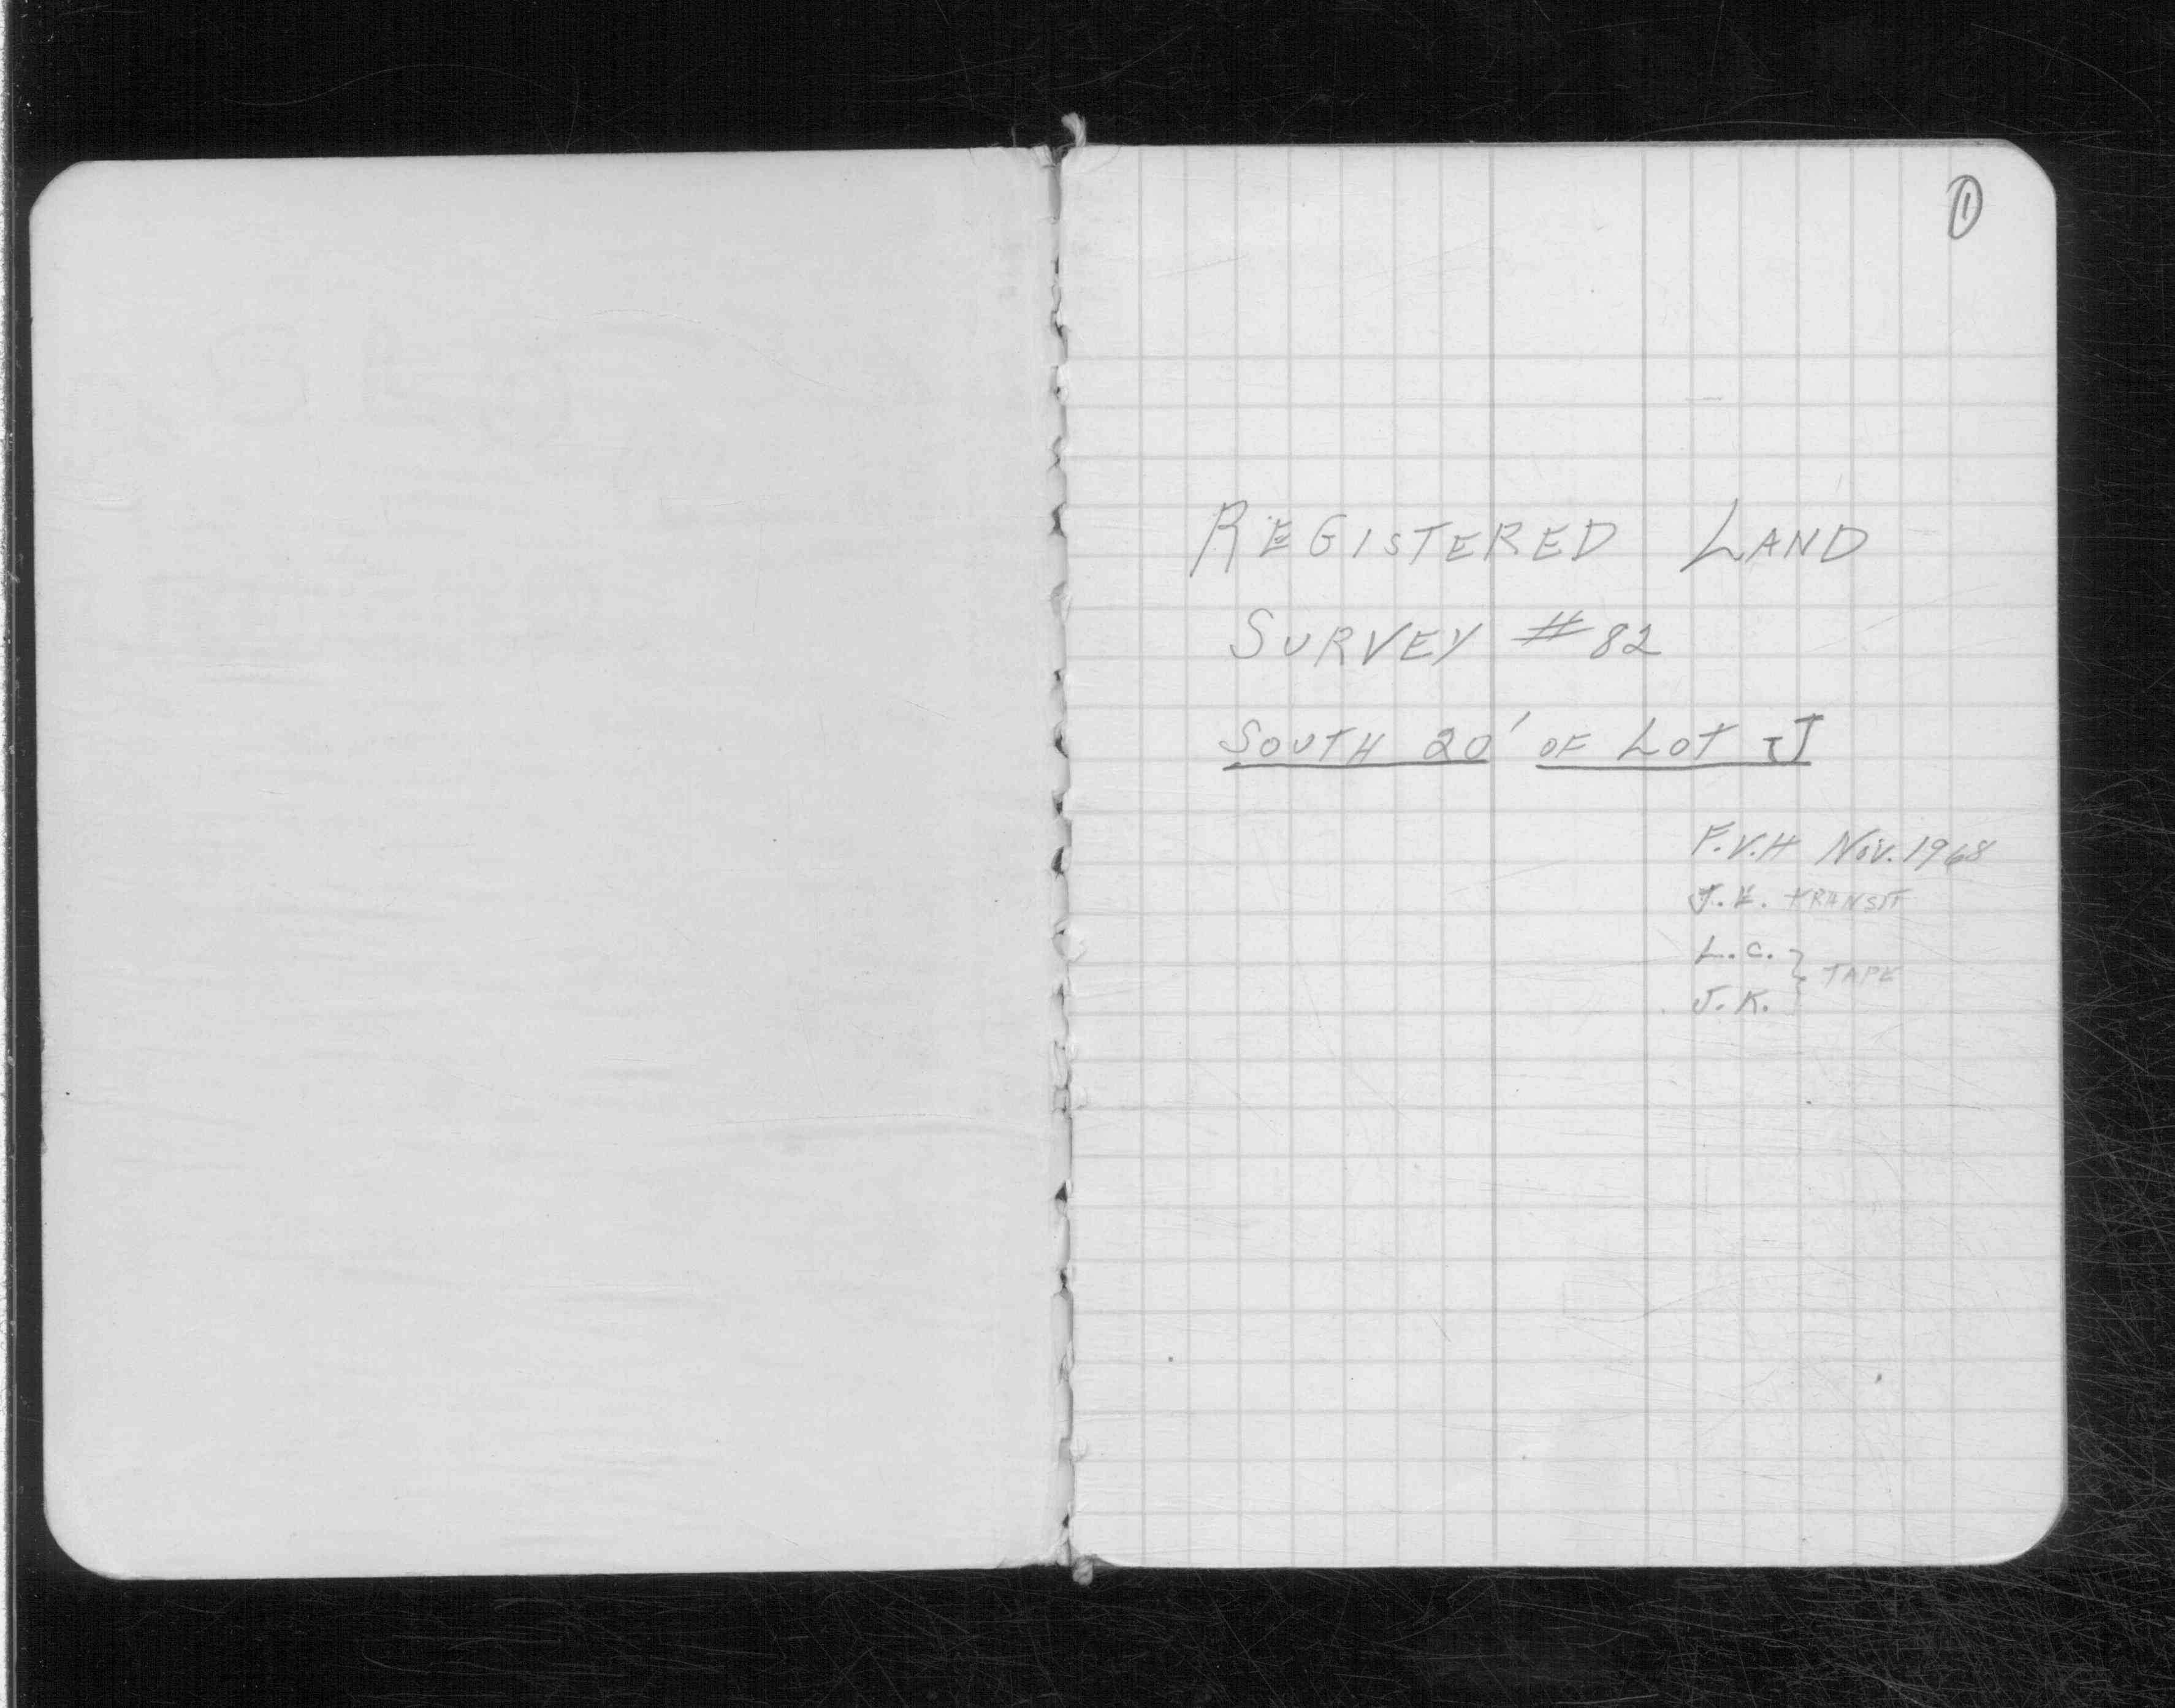 1
REGISTERED LAND
SURVEY #82
SOUTH 20' OF LOT J
F.V.H NOV. 1968
TRANSIT
L.C.
TAPE
J.K.